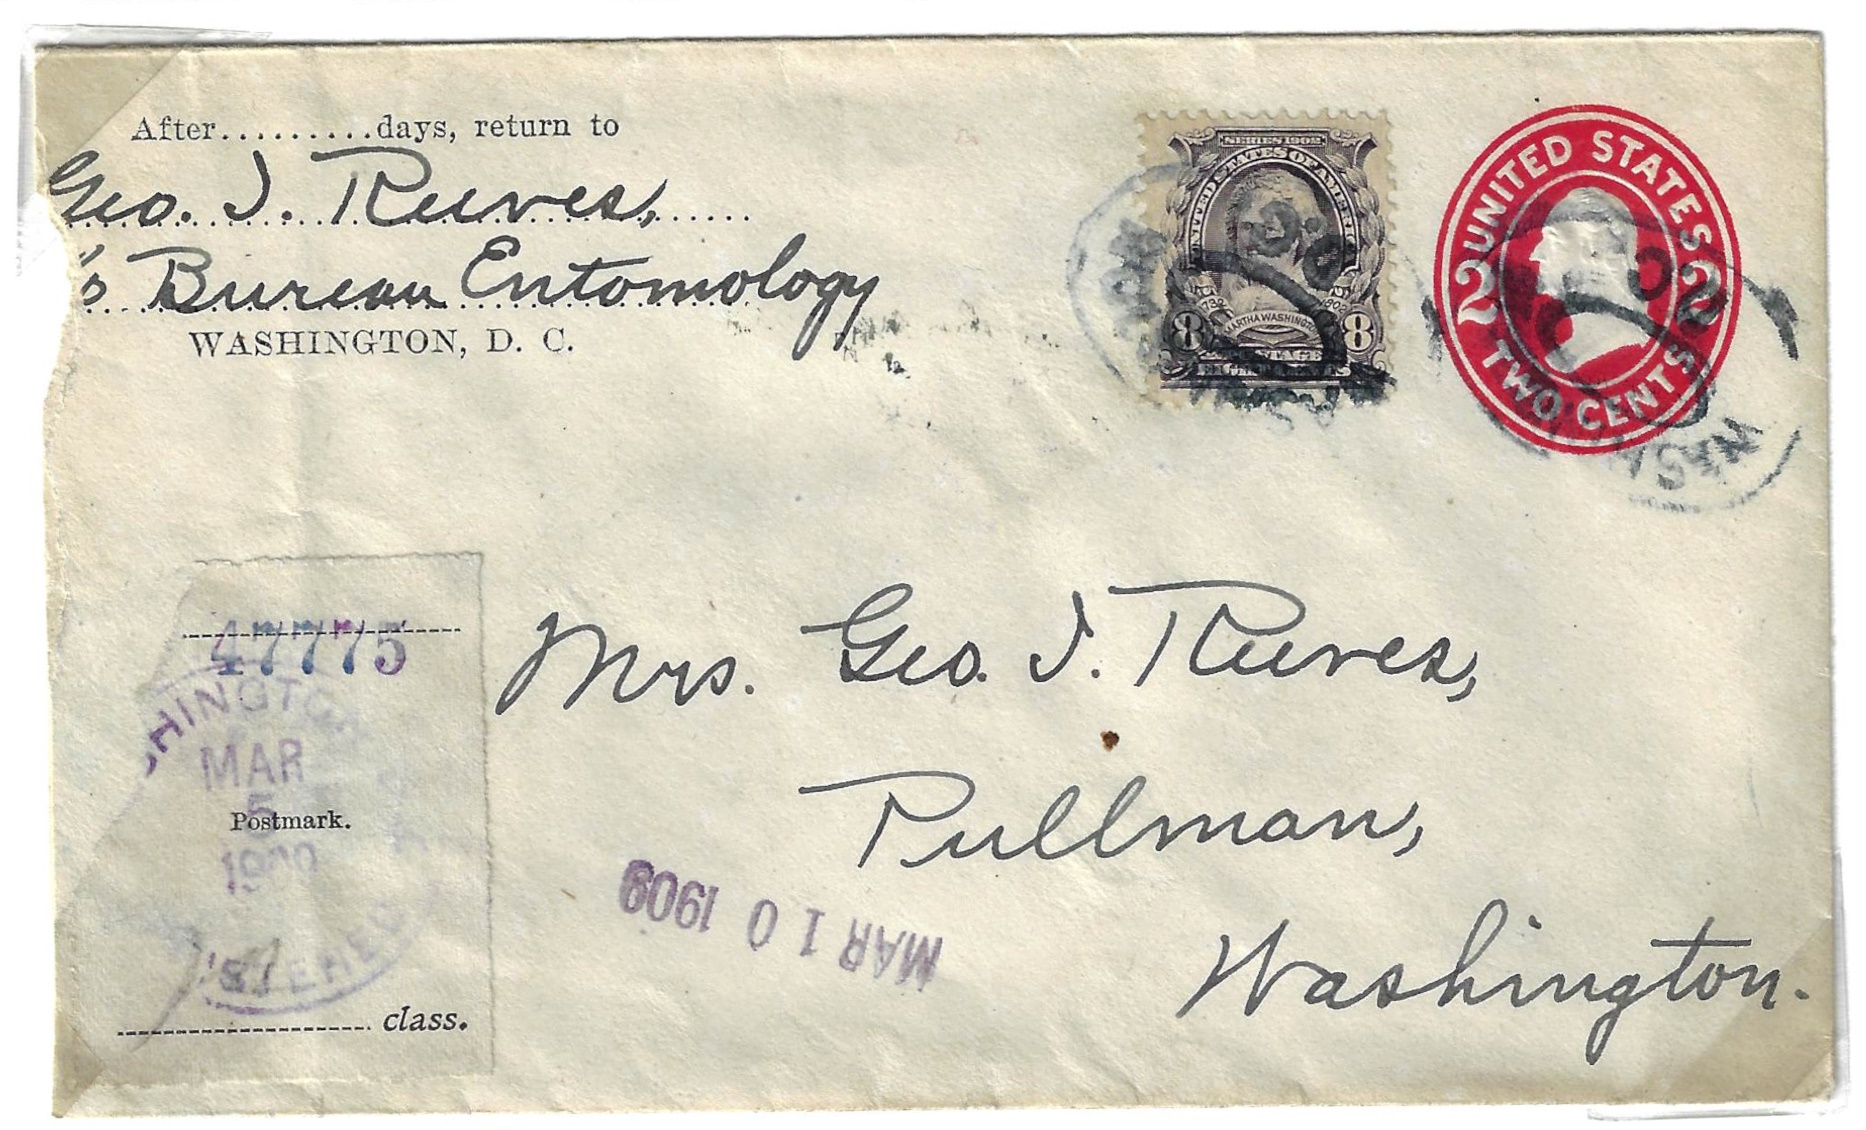 After.........days, return to
Geo. I. Reeves,
c/o Bureau Entomology
WASHINGTON, D. C.
SERIES 1902
UNITED STATES OF AMERICA
1732 1902
MARTHA WASHINGTON
8 8
UNITED STATES
2 2
TWO CENTS
WASH
47775
HINGTON
MAR
5
Postmark.
1909
class.
MAR 10 1909
Mrs. Geo. I. Reeves,
Pullman,
Washington.